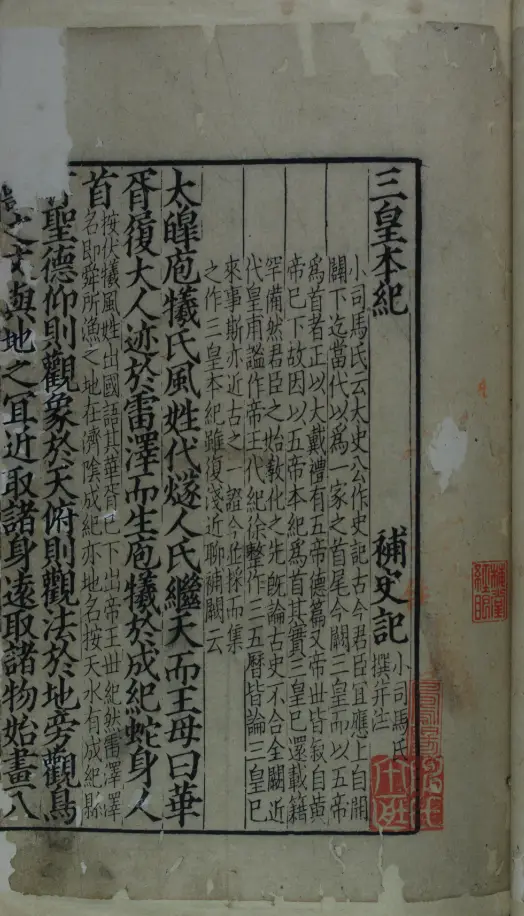 三皇本紀 補史記 小司馬氏
撰并注
小司馬氏云大史公作史記古今君臣宜應上自開
闢下迄當代以爲一家之首尾今闕三皇而以五帝
爲首者正以大戴禮有五帝德篇又帝世皆叙自黃
帝已下故因以五帝本紀爲首其實三皇已還載籍
罕備然君臣之始敎化之先旣論古史不合全闕近
代皇甫謐作帝王代紀徐整作三五曆皆論三皇已
來事斯亦近古之一證今並採而集
之作三皇本紀雖復淺近聊補闕云
太皥庖犧氏風姓代燧人氏繼天而王母曰華
胥履大人迹於雷澤而生庖犧於成紀蛇身人
首 按伏犧風姓出國語其華胥已下出帝王世紀然雷澤澤
名即舜所漁之地在濟陰成紀亦地名按天水有成紀縣
聖德仰則觀象於天俯則觀法於地旁觀鳥
之文與地之宜近取諸身遠取諸物始畫八
經眼